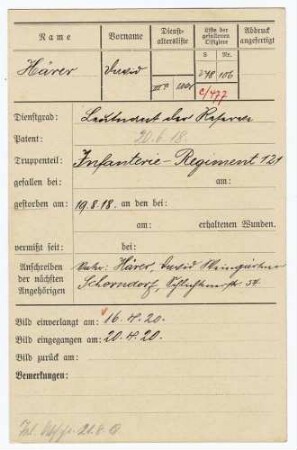 Name Vorname Dienstaltersliste Liste der gefallenen Offiziere Abdruck angefertigt
S Nr.
Härer David 248 106
C/477
Dienstgrad: Leutnant der Reserve
Patent: 20.6.18.
Truppenteil: Infanterie-Regiment 121
gefallen bei: am:
gestorben am: 19.8.18. an den bei:
am: erhaltenen Wunden.
vermißt seit: bei:
Anschreiben der nächsten Angehörigen
Vater: Härer, David Weingärtner
Schorndorf, Schlichtenerstr. 34
Bild einverlangt am: 16.4.20.
Bild eingegangen am: 20.4.20.
Bild zurück am:
Bemerkungen: